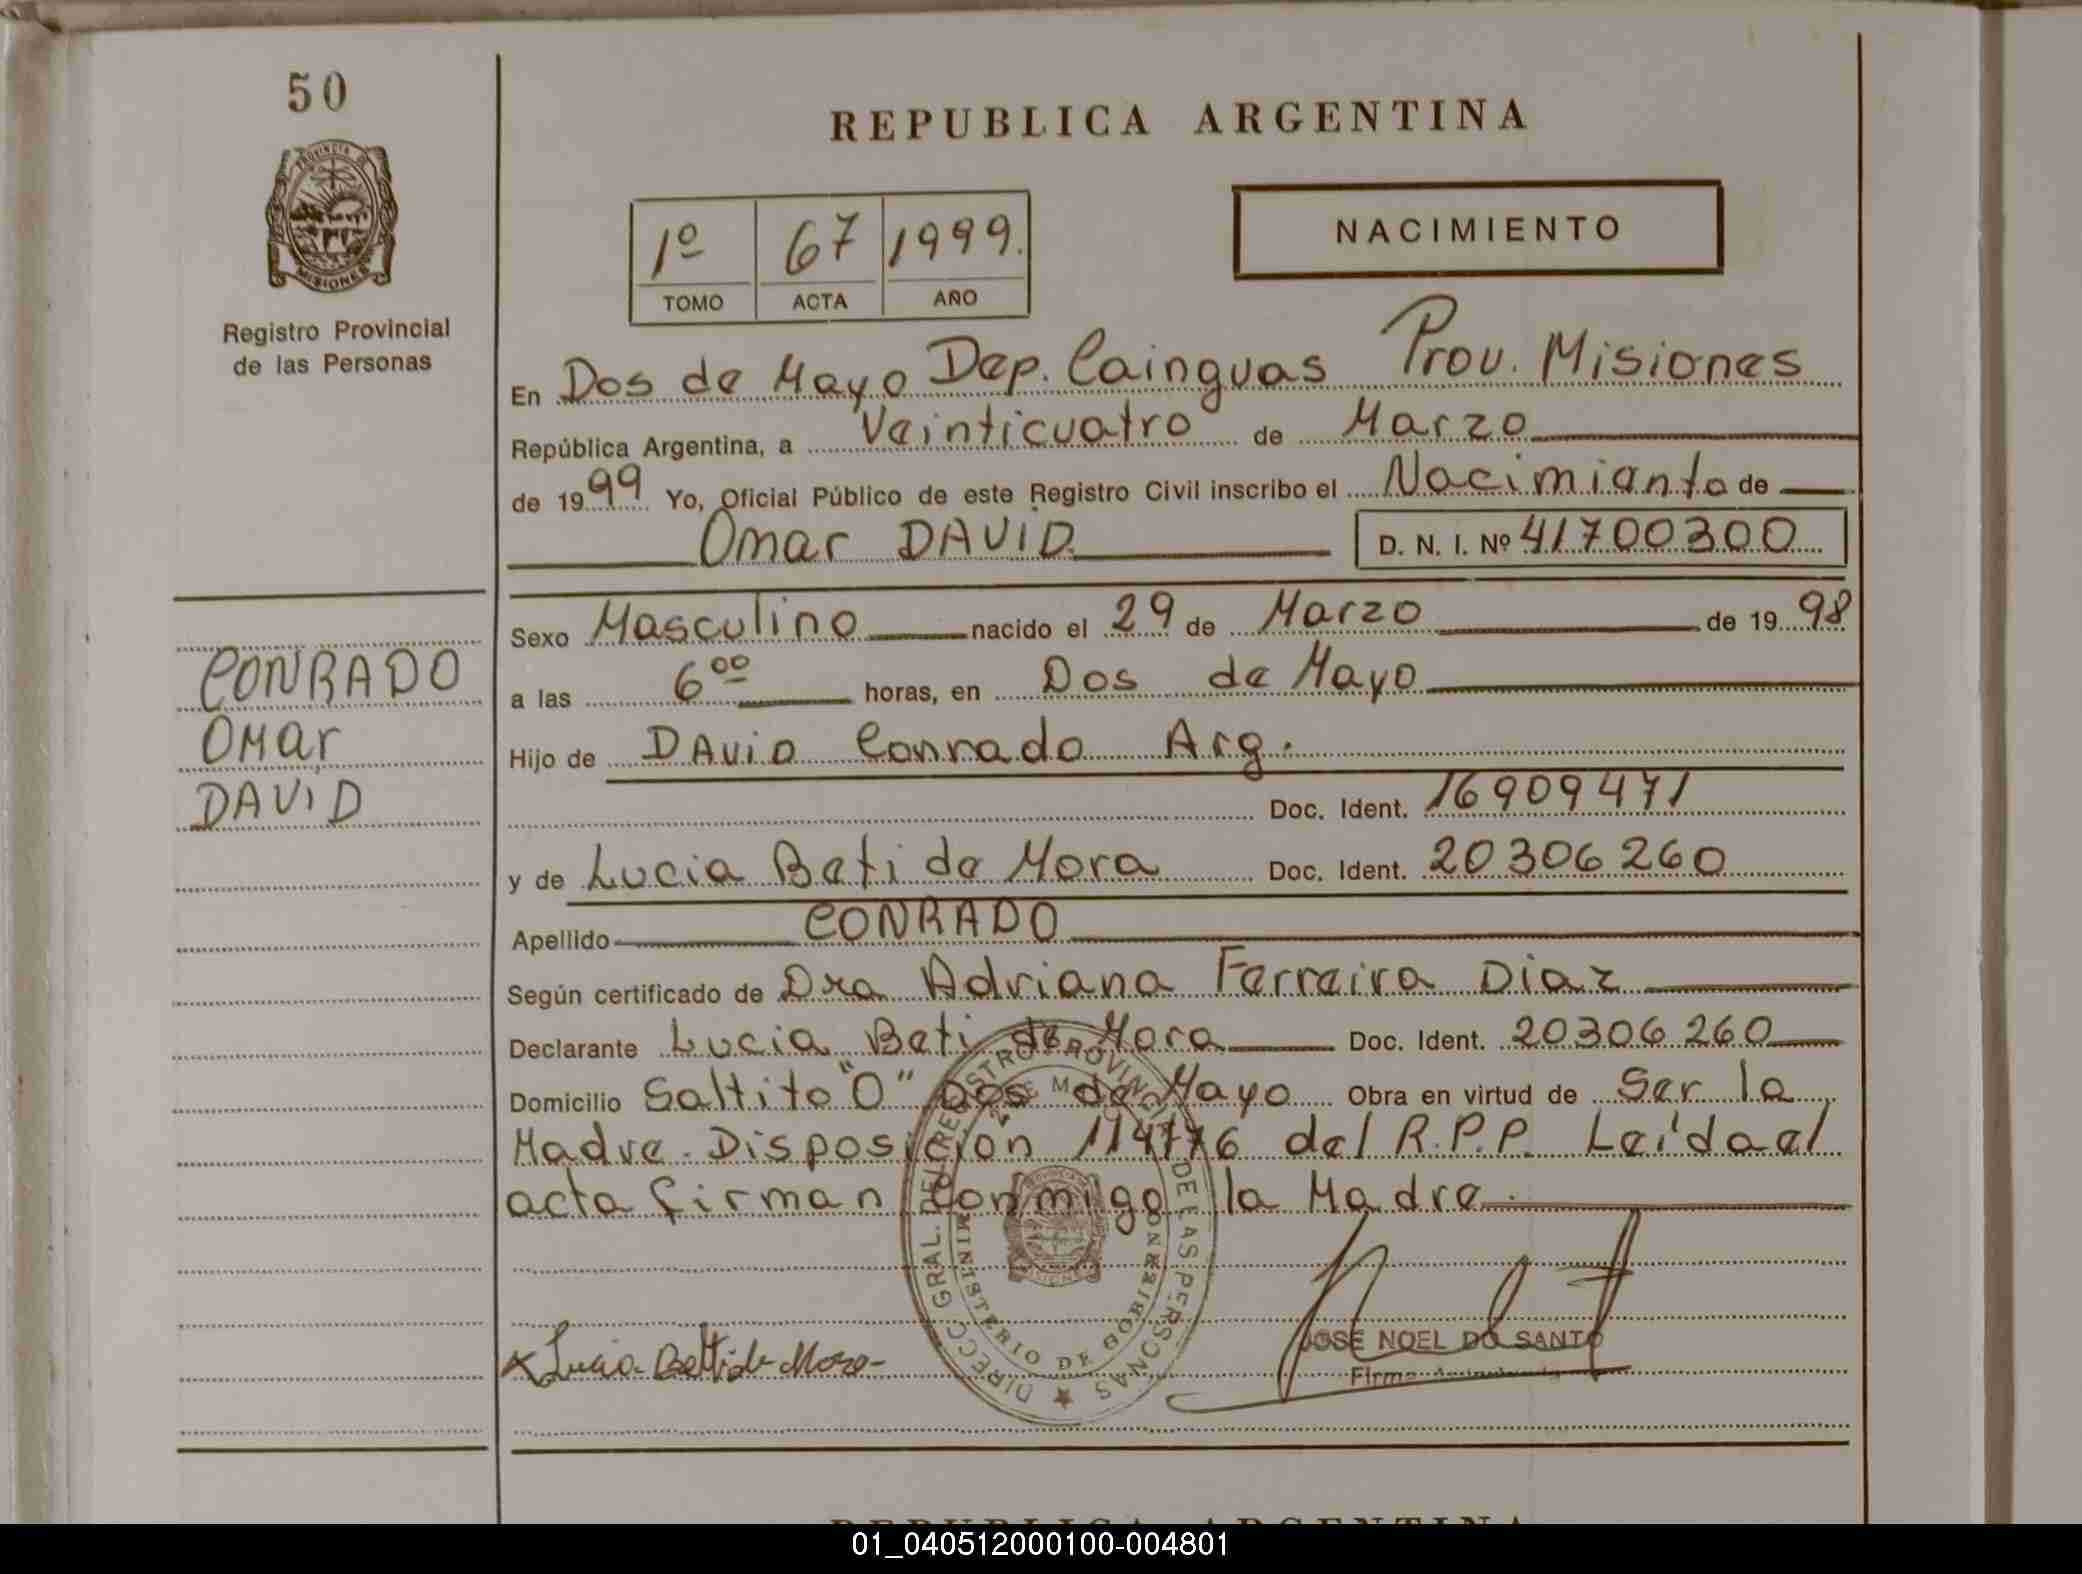 50
REPUBLICA ARGENTINA
PROVINCIA DE
MISIONES
Registro Provincial
de las Personas
1º 67 1999.
TOMO ACTA AÑO
NACIMIENTO
En Dos de Mayo Dep. Cainguas Prov. Misiones
República Argentina, a Veinticuatro de Marzo
de 1999 Yo, Oficial Público de este Registro Civil inscribo el Nacimianto de
Omar DAVID D. N. I. Nº 41700300
Sexo Masculino nacido el 29 de Marzo de 1998
a las 6ºº horas, en Dos de Mayo
Hijo de DAVID Conrado Arg.
Doc. Ident. 16909471
y de Lucia Beti de Mora Doc. Ident. 20306260
Apellido CONRADO
Según certificado de Dra Adriana Ferreira Diaz
Declarante Lucia Beti de Mora Doc. Ident. 20306260
Domicilio Saltito "O" Dos de Mayo Obra en virtud de Ser la
Madre. Disposicion del R.P.P. Leída el
acta firman conmigo la Madre.
CONRADO
Omar
DAVID
DIRECC GRAL. DEL REGISTRO PROVINCIAL DE LAS PERSONAS
MINISTERIO DE GOBIERNO
Lucia Betti de Mora
JOSE NOEL DO SANTO
Firma
REPUBLICA ARGENTINA
01_040512000100-004801